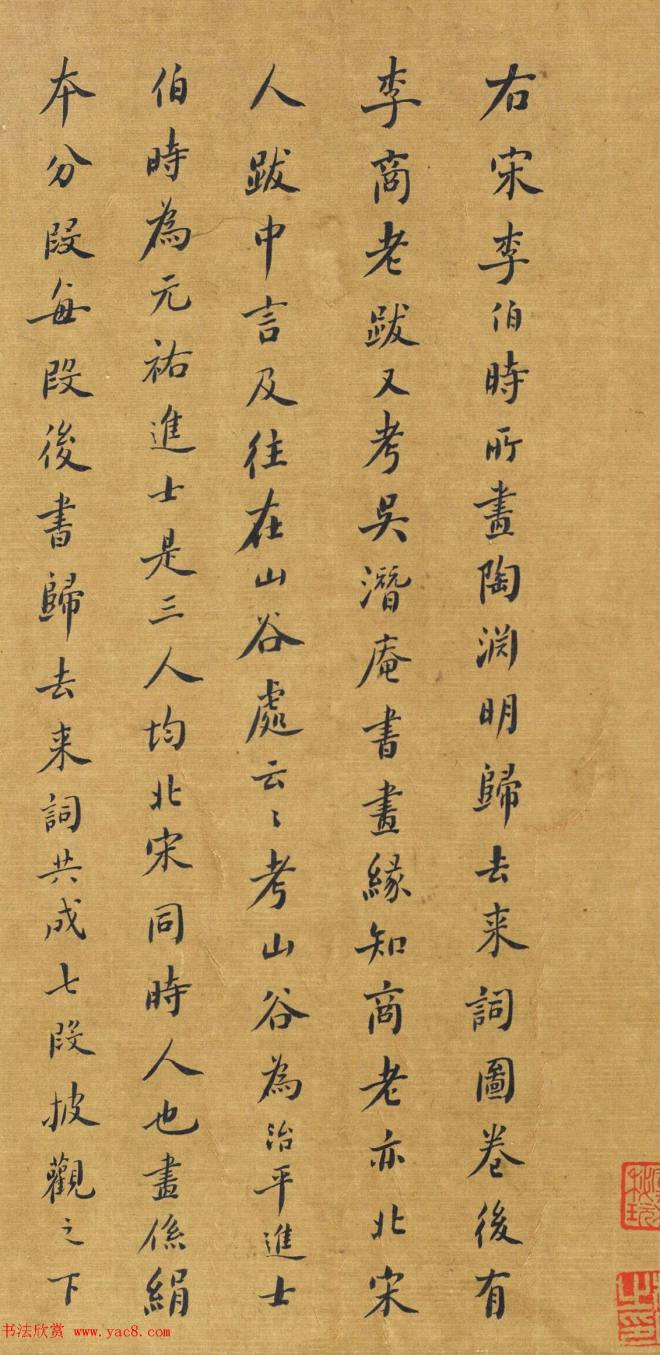 右宋李伯時所畫陶渊明歸去来詞圖卷後有
李商老跋又考吳潛庵書畫緣知商老亦北宋
人跋中言及往在山谷處云〻考山谷為治平進士
伯時為元祐進士是三人均北宋同時人也畫係絹
本分段每段後書歸去来詞共成七段披觀之下
书法欣赏 www.yac8.com